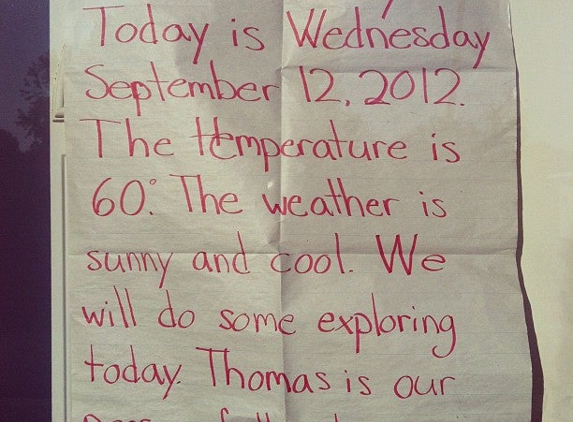 Today is Wednesday
September 12, 2012.
The temperature is
60°. The weather is
sunny and cool. We
will do some exploring
today. Thomas is our